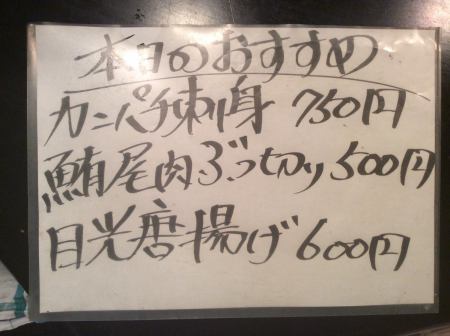 本日のおすすめ
カンパチ刺身 750円
鮪尾肉ぶつ切り 500円
目光唐揚げ 600円